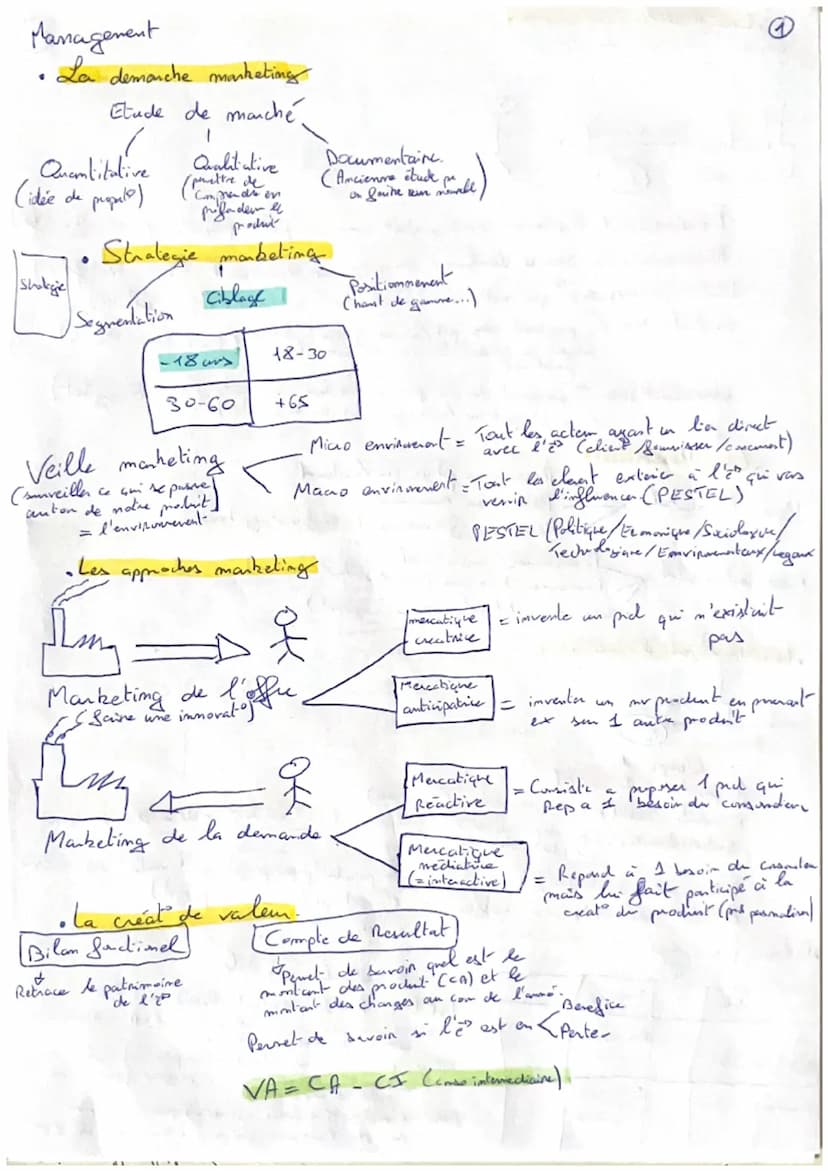 Management
①
• La demarche marketing
Etude de marché
Quantitative
(idée de propᵒ)
Qualitative
(permettre de
comprendre en
profondeur le
produit
Documentaire
(Ancienne étude pr
en faire une nouvelle)
• Strategie marketing
Strategie
Segmentation
Ciblage
Positionnement
(haut de gamme...)
-18 ans
18-30
30-60
+65
Veille marketing
(surveiller ce qui se passe
autour de notre produit)
= l'environnement
Micro environnement = Tout les acteur ayant un lien direct
avec l'e (client/fournisseur/concurrent)
Macro environnement = Tout les element exterieur à l'e qui vas
venir l'influencer (PESTEL)
PESTEL (Politique/Economique/Sociologique/
Technologique/Environnementaux/Legaux
• Les approches marketing
Marketing de l'offre
(faire une innovatᵒ)
mercatique
creatrice
= invente un pdt qui n'existait
pas
Mercatique
anticipatrice
= inventer un nv produit en prenant
ex sur 1 autre produit
Marketing de la demande
Mercatique
Réactive
= Consiste a proposer 1 pdt qui
rep a 1 besoin du consommateur
Mercatique
médiatrice
(= interactive)
= Repond à 1 besoin du
mais lui fait participé à la
creatᵒ du produit
• La créatᵒ de valeur
Bilan fonctionel
Retrace le patrimoine
de l'e
Compte de Resultat
Permet de savoir quel est le
montant des produit (CA) et le
montant des charges au cour de l'année.
Permet de savoir si l'e est en
Benefice
Perte
VA = CA - CI (conso intermediaire)